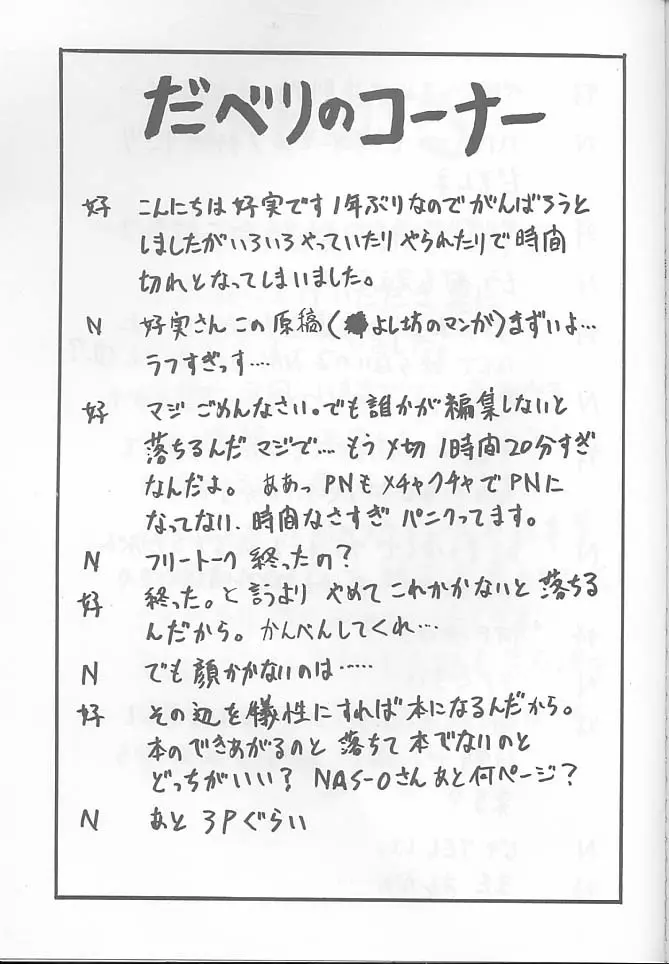 だべりのコーナー
好 こんにちは好実です1年ぶりなのでがんばろうと
しましたがいろいろやっていたりやられたりで時間
切れとなってしまいました。
N 好実さんこの原稿(よし坊のマンガ)まずいよ…
ラフすぎっす…
好 マジごめんなさい。でも誰かが編集しないと
落ちるんだマジで…もう〆切1時間20分すぎ
なんだよ。ああっPNもメチャクチャでPNに
なってない、時間なさすぎパニクってます。
N フリートーク終ったの?
好 終った。と言うよりやめてこれかかないと落ちる
んだから。かんべんしてくれ…
N でも顔かかないのは……
好 その辺を犠性にすれば本になるんだから。
本のできあがるのと落ちて本でないのと
どっちがいい? NAS-Oさんあと何ページ?
N あと3Pぐらい